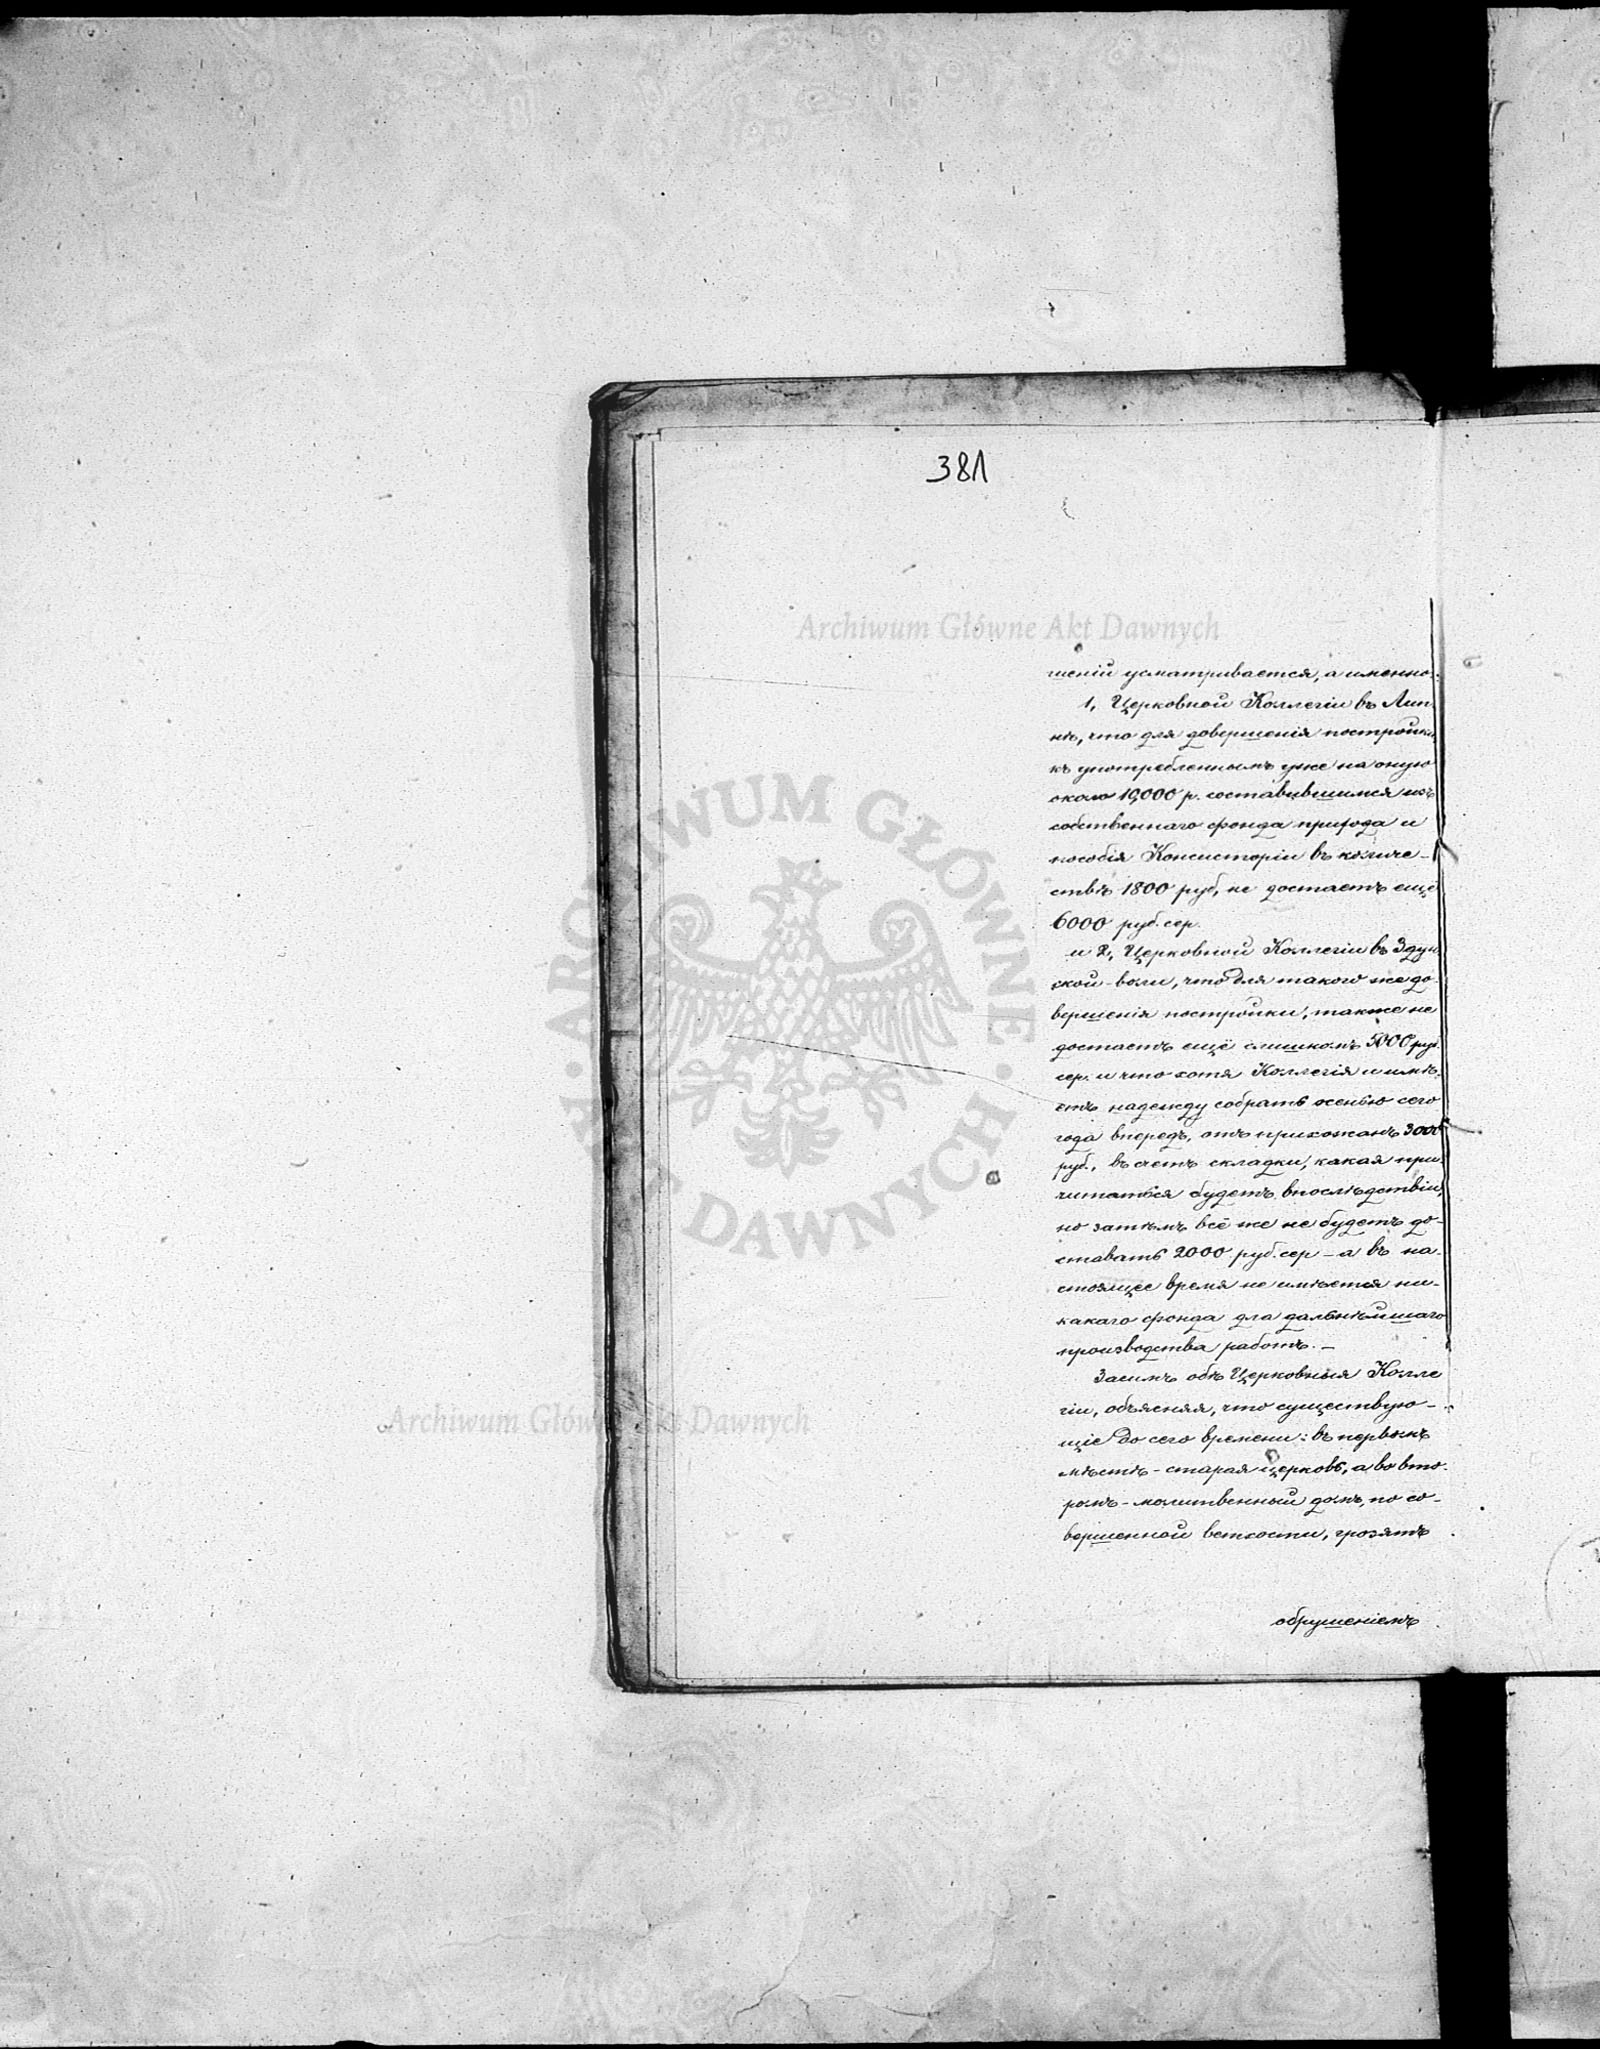 381
Archiwum Główne Akt Dawnych
шеній усматривается, а именно:
1, Церковной Коллегіи въ Лип-
нѣ, что для довершенія постройки,
къ употребленнымъ уже на оную
около 19,000 р. составившимся изъ
собственнаго фонда прихода и
пособія Консисторіи въ количе-
ствѣ 1800 руб, не достаетъ ещё
6000 руб. сер.
и 2, Церковной Коллегіи въ Здун-
ской-воли, что для такого же до-
вершенія постройки, также не
достаетъ ещё слишкомъ 5000 руб.
сер. и что хотя Коллегія и имѣ-
етъ надежду собрать осенью сего
года впередъ, отъ прихожанъ 3000
руб., въ счетъ складки, какая при-
читаться будетъ впослѣдствіи,
но затѣмъ всё же не будетъ до-
ставать 2000 руб. сер – а въ на-
стоящее время не имѣется ни-
какаго фонда для дальнѣйшаго
производства работъ. –
Засимъ обѣ Церковныя Колле
гіи, объясняя, что существую-
щіе до сего времени: въ первомъ
мѣстѣ - старая церковь, а во вто-
ромъ - молитвенный домъ, по со-
вершенной ветхости, грозятъ
обрушеніемъ
ARCHIWUM GŁÓWNE AKT DAWNYCH
Archiwum Główne Akt Dawnych